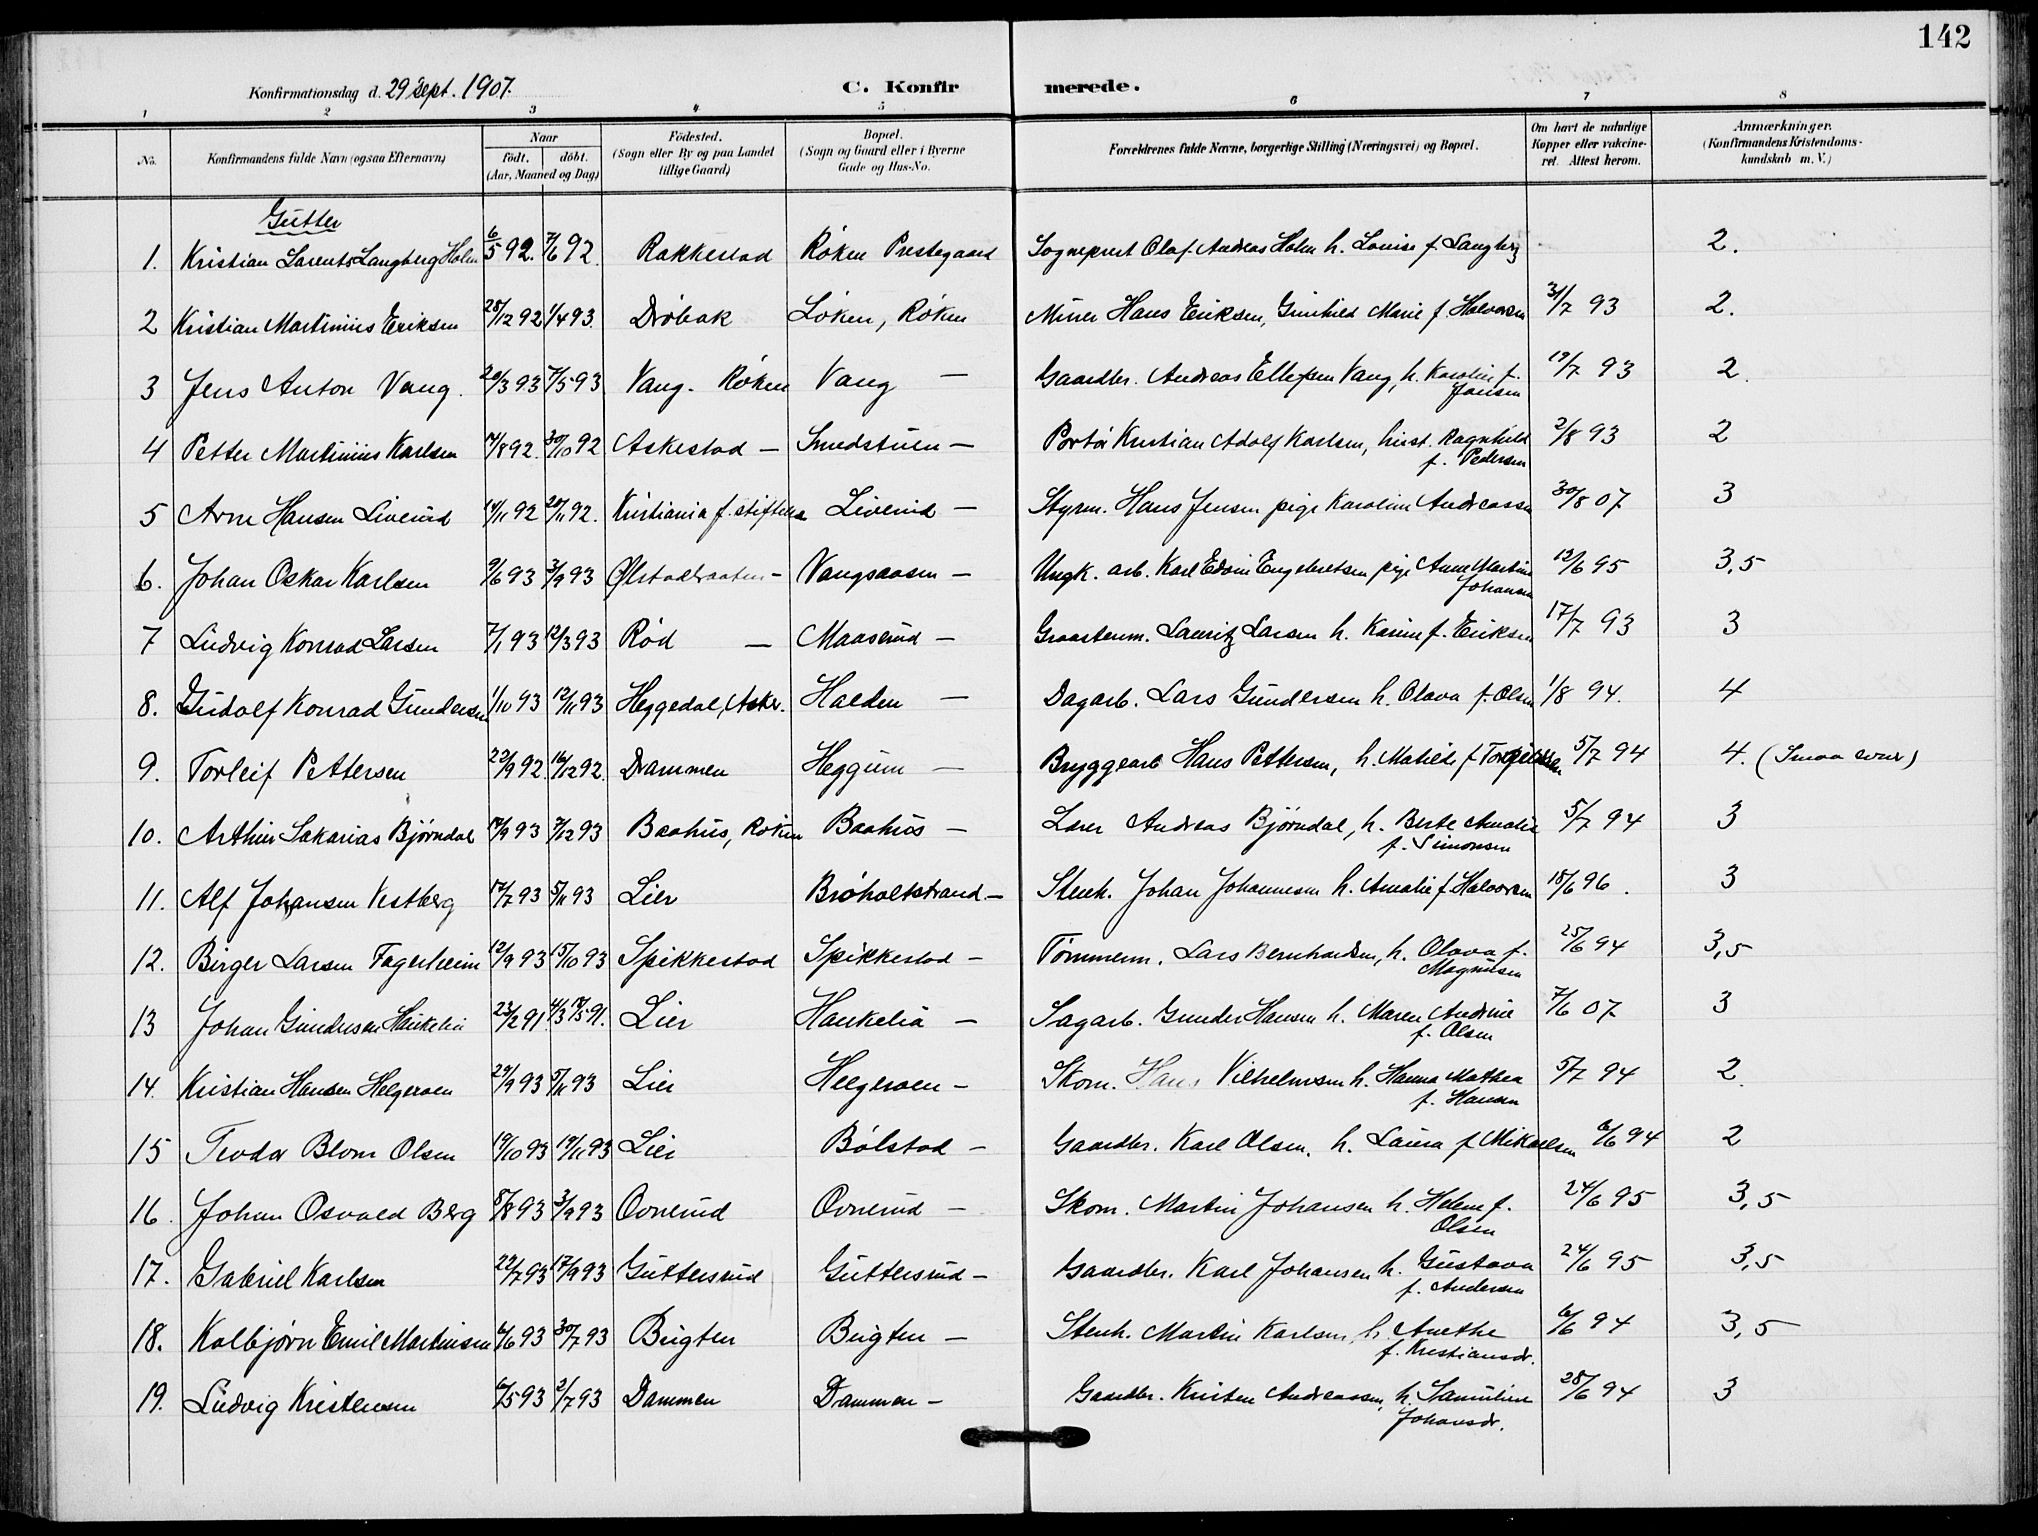 142
Konfirmationsdag d. 29 Sept. 1907.
C. Konfirmerede.
1 2 3 4 5 6 7 8
No.
Konfirmandens fulde Navn (ogsaa Efternavn)
Naar
födt. döbt.
(Aar, Maaned og Dag)
Födested.
(Sogn eller By og paa Landet
tillige Gaard)
Bopæl.
(Sogn og Gaard eller i Byerne
Gade og Hus-No.
Forældrenes fulde Navne, borgerlige Stilling (Næringsvei) og Bopæl.
Om havt de naturlige
Kopper eller vakcine-
ret. Attest herom.
Anmærkninger.
(Konfirmandens Kristendoms-
kundskab m. V.)
Gutter
1. Kristian Larents Langberg Holm 6/5 92. 7/6 92. Rakkestad Røken Prestegaard Sogneprest Olaf Andreas Holm h. Louise f. Langberg 2.
2 Kristian Martinius Eriksen 28/12 92 1/4 93. Drøbak Løken, Røken Miner Hans Eriksen, Gunhild Marie f. Halvorsen 31/7 93 2.
3 Jens Anton Vang. 20/3 93 7/5 93 Vang. Røken Vang — Gaardbr. Andreas Ellefsen Vang, h. Karolin f. Jonsen 19/7 93 2.
4 Petter Martinius Karlsen 14/8 92. 30/10 92 Askestad — Smedstuen — Portør Kristian Adolf Karlsen, hust. Ragnhild f. Pedersen 2/8 93 2
5 Arne Hansen Liverud 14/11 92 20/11 92. Kristiania f. stiftelse Liverud — Styrm. Hans Jensen pige Karoline Andreassen 30/8 07 3
6. Johan Oskar Karlsen 9/6 93 3/9 93 Ølstadbraaten — Vangsaasen — Ungk. arb. Karl Edvin Engebretsen pige Anne Martine Johansen 12/6 95 3,5
7 Ludvig Konrad Larsen 7/1 93 12/3 93 Rød — Maaserud — Graastenm. Lauritz Larsen h. Karine f. Eriksen 17/7 93 3
8. Gudolf Konrad Gundersen 1/10 93 12/11 93 Heggedal, Asker. Halden — Dagarb. Lars Gundersen h. Olava f. Olsen 1/8 94. 4
9. Torleif Pettersen 22/9 92 14/12 92. Drammen Heggum — Bryggearb Hans Pettersen, h. Matilde f Torgersen 5/7 94 4. (Smaa evner)
10. Arthur Sakarias Bjørndal 14/9 93 7/12 93 Baahus, Røken Baahus — Lærer Andreas Bjørndal, h. Berte Amalie f. Simonsen 5/7 94 3
11. Alf Johansen Vestberg 12/7 93 5/11 93 Lier Brøholtstrand — Stenh. Johan Johannesen h. Amalie f. Halvorsen 18/6 96. 3
12. Birger Larsen Fagerheim 12/9 93 15/10 93 Spikkestad Spikkestad — Tømmerm. Lars Bernhardsen, h. Olava f. Magnusen 25/6 94 3,5
13 Johan Gundersen Haukelia 23/2 91 4/3 17/5 91. Lier Haukelia — Sagarb. Gunder Hansen h. Maren Andrine f. Olsen 7/6 07 3
14. Kristian Hansen Helgeroen 29/9 93 5/11 93 Lier Helgeroen — Skom. Hans Vilhelmsen h. Hanna Mathea f. Hansen 5/7 94 2.
15 Teodor Blom Olsen 19/10 93 19/11 93 Lier Bølstad — Gaardbr. Karl Olsen. h. Laura f Mikaelsen 6/6 94 2
16. Johan Osvald Berg 8/8 93 3/9 93 Ovnerud Ovnerud — Skom. Martin Johansen h. Helene f. Olsen 24/6 95 3,5
17. Gabriel Karlsen 22/7 93 17/9 93 Guttersrud Guttersrud — Gaardbr. Karl Johansen h. Gustava f. Andersen 24/6 95 3,5
18. Kolbjørn Emil Martinsen 6/6 93 30/7 93 Bugten Bugten — Stenh. Martin Karlsen, h. Anethe f. Kristiansdr. 6/6 94 3,5
19. Ludvig Kristensen 6/5 93 2/7 93 Dammen Dammen — Gaardbr. Kristen Andreassen, h. Samuline Johansdr. 28/6 94 3